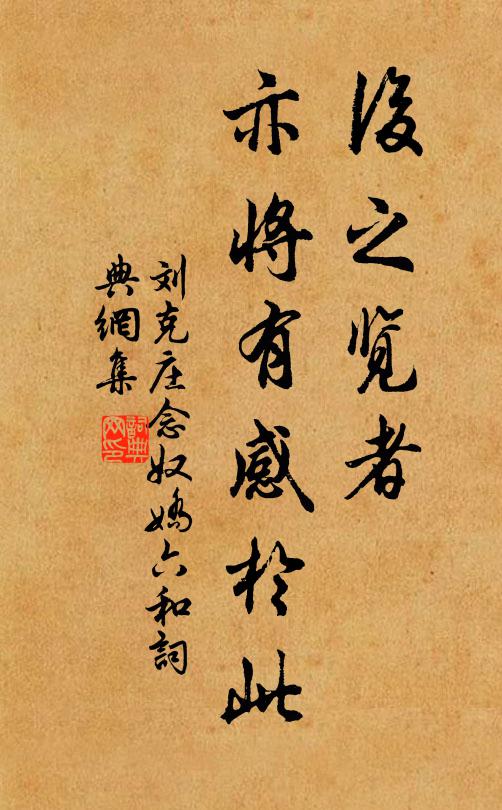 後之览者
亦将有感於此
刘克庄念奴嬌六和詞
典網集
詞典
网印